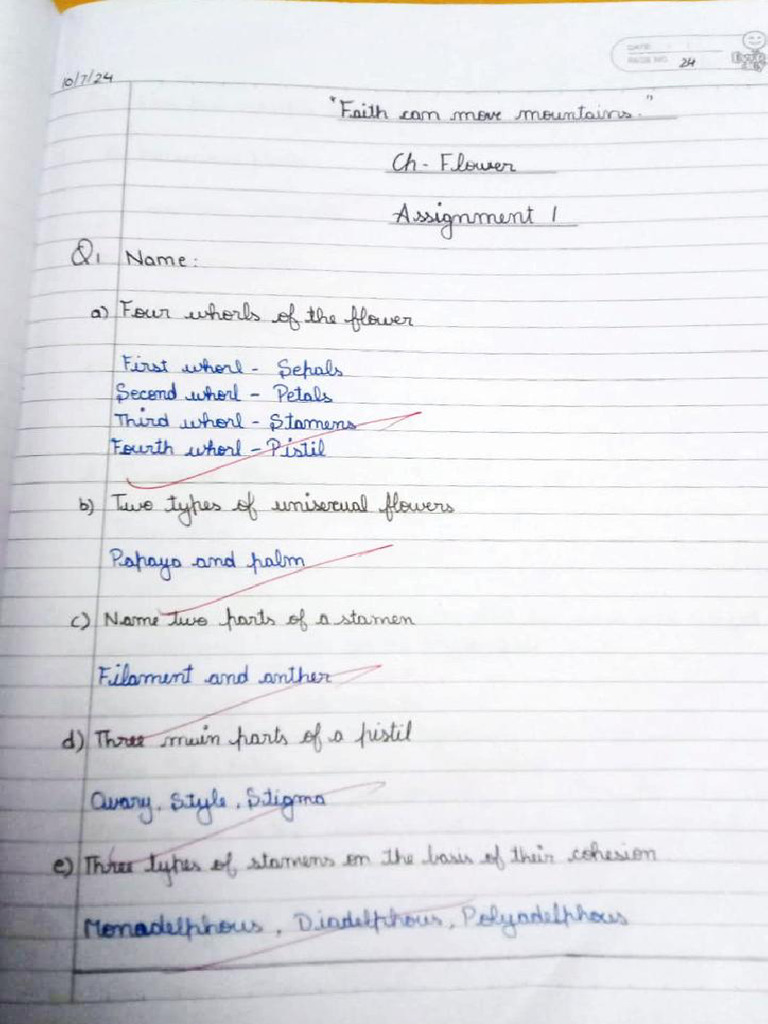 DATE: / /
PAGE NO. 24
10/7/24
"Faith can move mountains."
Ch- Flower
Assignment 1
Q1 Name:
a) Four whorls of the flower
First whorl - Sepals
Second whorl - Petals
Third whorl - Stamens
Fourth whorl - Pistil
b) Two types of unisexual flowers
Papaya and palm
c) Name two parts of a stamen
Filament and anther
d) Three main parts of a pistil
Ovary, Style, Stigma
e) Three types of stamens on the basis of their cohesion
Monadelphous, Diadelphous, Polyadelphous